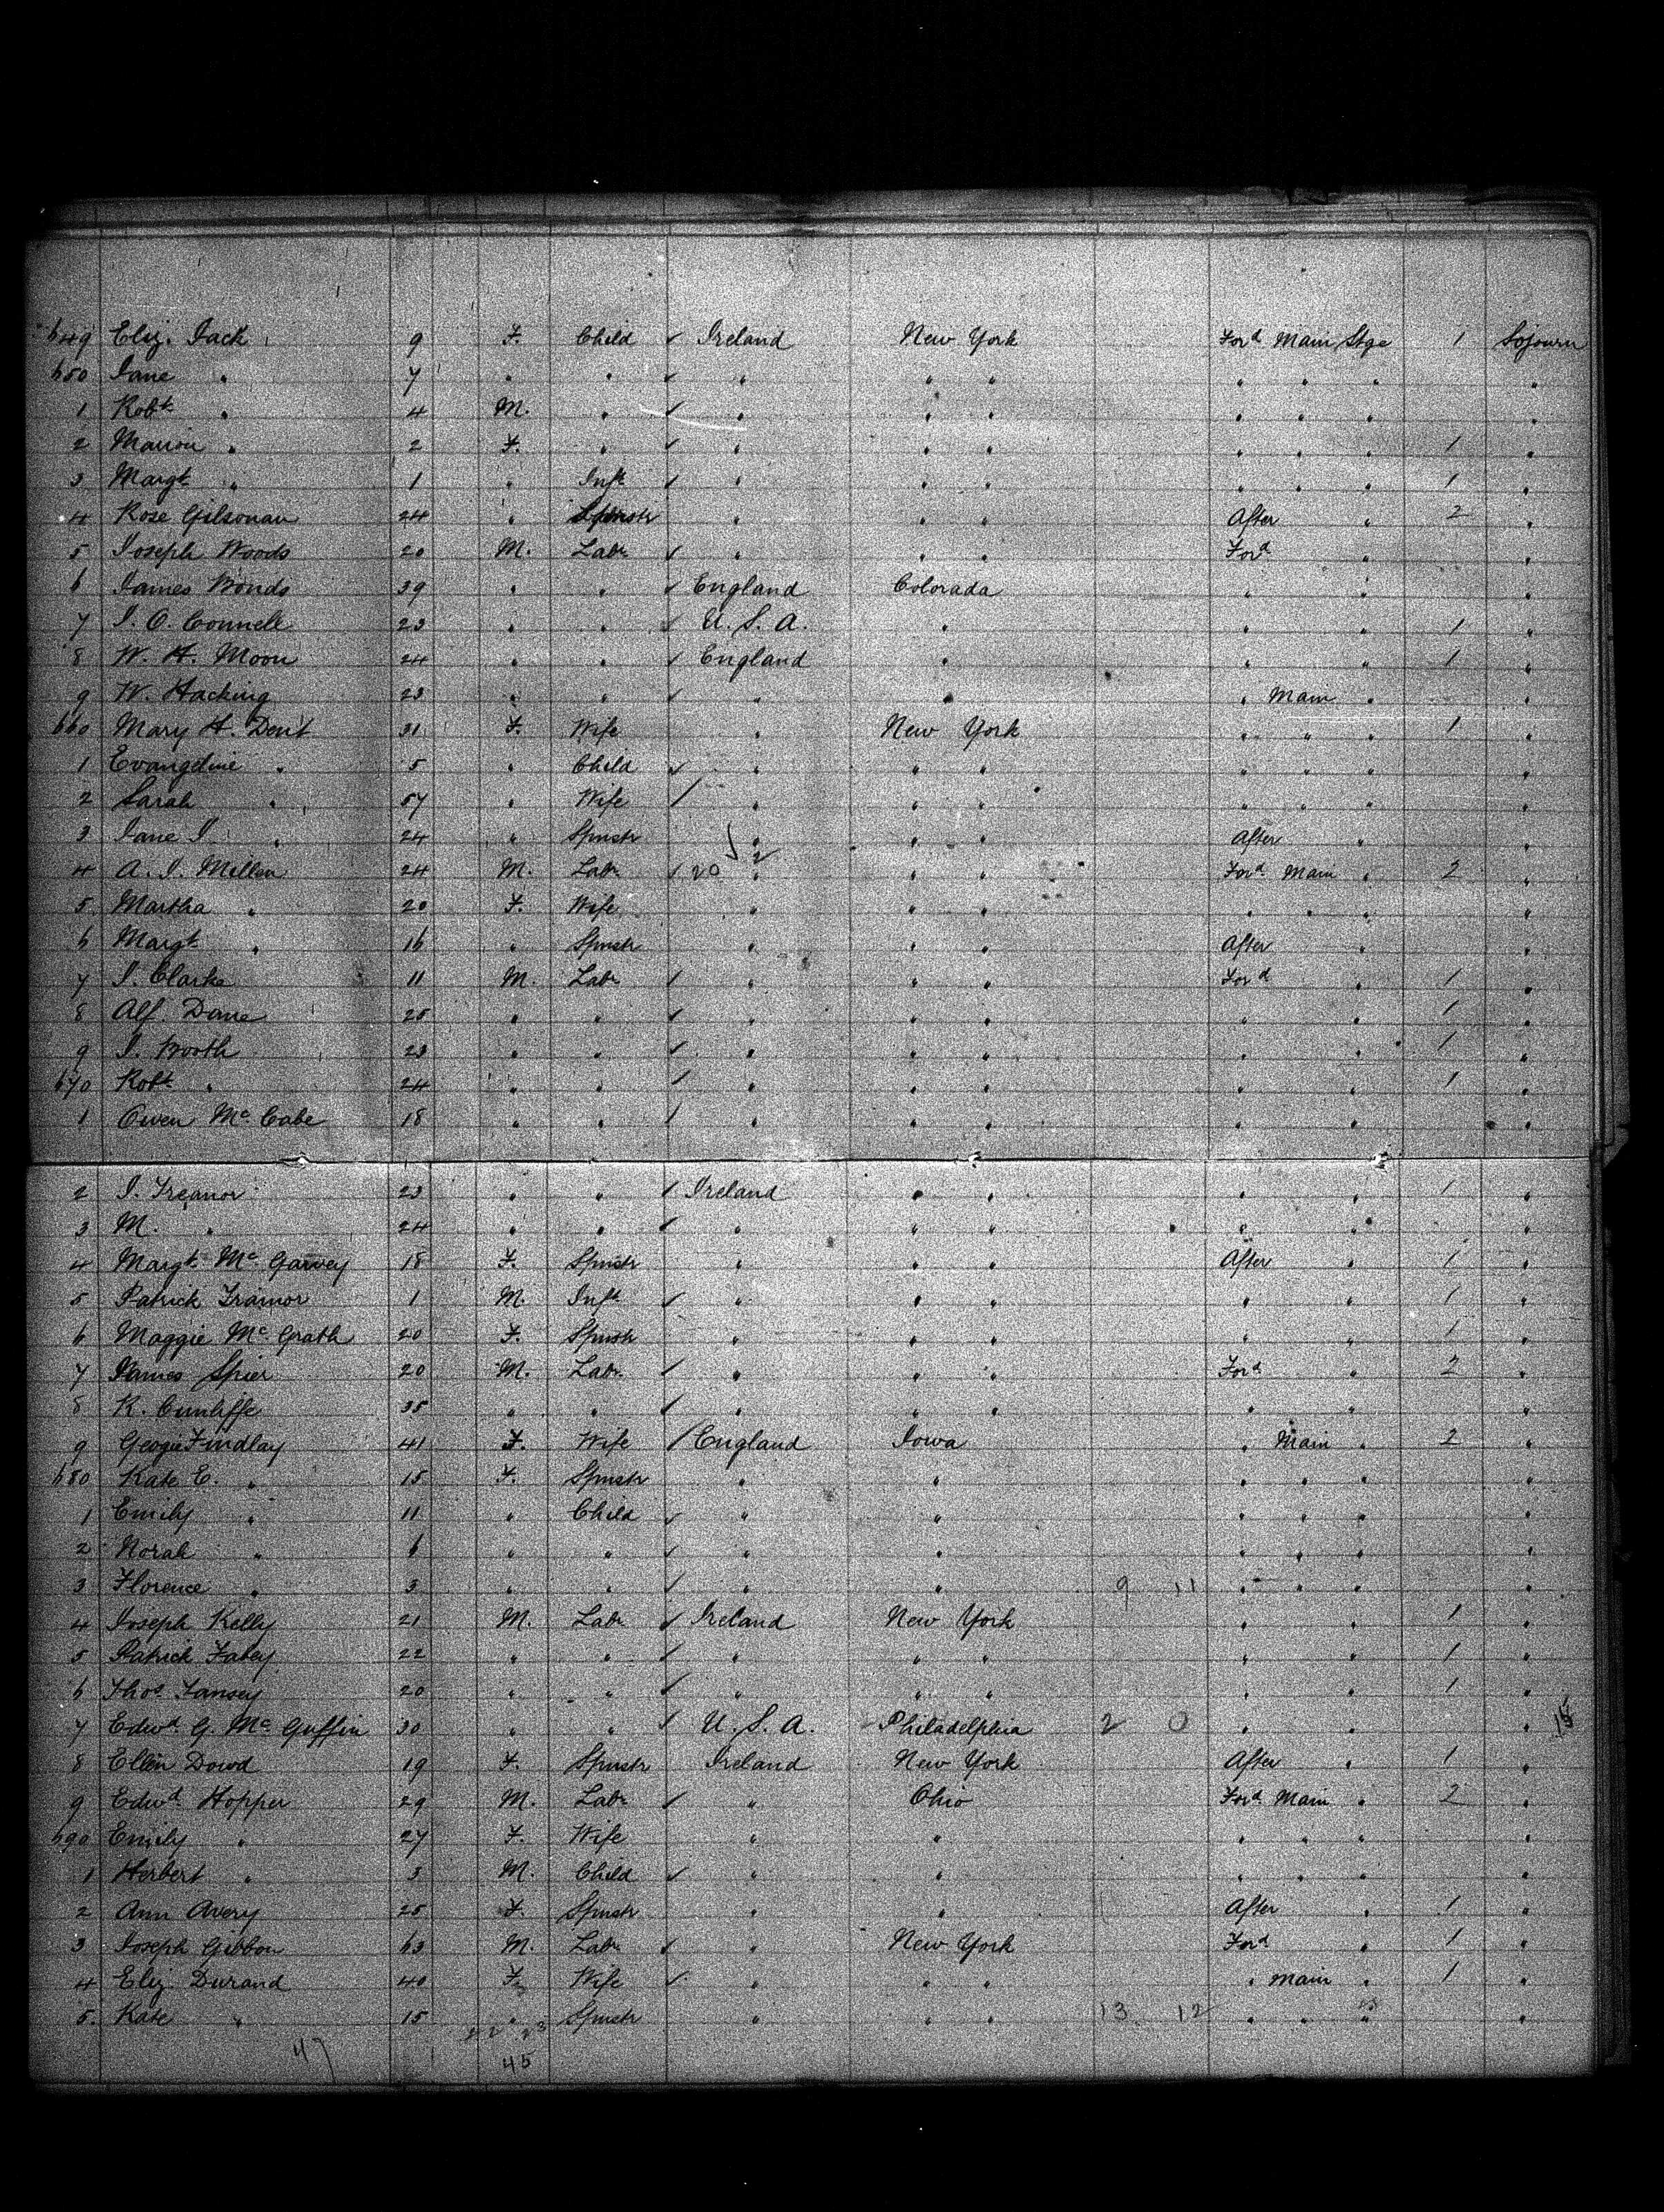 649 Eliz. Jack 9 F. Child ✓ Ireland New York For^d Main Stge 1 Sojourn
650 Jane " 7 " " ✓ " " " " " " "
1 Rob^t " 4 M. " ✓ " " " " " " "
2 Marion " 2 F. " ✓ " " " " " " 1 "
3 Marg^t " 1 " Inft ✓ " " " " " " 1 "
4 Rose Gilsonan 24 " Spnstr " " " After " 2 "
5 Joseph Woods 20 M. Labr ✓ " " " For^d " "
6 James Bonds 39 " " ✓ England Colorada " " "
7 J. O. Connell 23 " " ✓ U.S.A. " " " 1 "
8 W. H. Moon 24 " " ✓ England " " " 1 "
9 W. Hacking 23 " " ✓ " " " Main " "
660 Mary H. Dent 31 F. Wife " New York " " " 1 "
1 Evangeline " 5 " Child ✓ " " " " " " "
2 Sarah " 57 " Wife / " " " " " " "
3 Jane I. " 24 " Spnstr " " " After " "
4 A. I. Millen 24 M. Labr ✓ 20 2 " " " For^d Main " 2 "
5 Martha " 20 F. Wife " " " " " " "
6 Marg^t " 16 " Spnstr " " " After " "
7 J. Clarke 11 M. Labr / " " " For^d " 1 "
8 Alf. Dane 25 " " ✓ " " " " " 1 "
9 J. Booth 23 " " ✓ " " " " " 1 "
670 Rob^t " 24 " " / " " " " " 1 "
1 Owen Mc Cabe 18 " " / " " " " " "
2 J. Treanor 23 " " / Ireland " " " " 1 "
3 M. " 24 " " ✓ " " " " " "
4 Marg^t Mc Garvey 18 F. Spnstr " " " After " 1 "
5 Patrick Trainor 1 M. Inft ✓ " " " " " 1 "
6 Maggie Mc Grath 20 F. Spnstr " " " " " 1 "
7 James Spier 20 M. Labr / " " " For^d " 2 "
8 R. Cunliffe 35 " " / " " " " " "
9 Geogie Findlay 41 F. Wife / England Iowa " Main " 2 "
680 Kate E. " 15 F. Spnstr " " " " " "
1 Emily " 11 " Child ✓ " " " " " "
2 Norah " 6 " " ✓ " " " " " "
3 Florence " 3 " " / " " 9 11 " " " "
4 Joseph Kelly 21 M. Labr ✓ Ireland New York " " 1 "
5 Patrick Fahey 22 " " / " " " " " 1 "
6 Tho^s Tansey 20 " " ✓ " " " " " 1 "
7 Edw^d G. Mc Guffin 30 " " ✓ U.S.A. Philadelphia 2 0 " " " 15
8 Ellen Dowd 19 F. Spnstr Ireland New York After " 1 "
9 Edw^d Hopper 29 M. Labr ✓ " Ohio For^d Main " 2 "
690 Emily " 27 F. Wife " " " " " "
1 Herbert " 3 M. Child ✓ " " " " " "
2 Ann Avery 25 F. Spnstr " " After " 1 "
3 Joseph Gibbon 63 M. Labr ✓ " New York For^d " 1 "
4 Eliz. Durand 40 F. Wife ✓ " " " " Main " 1 "
5. Kate " 15 " Spnstr " " " 13 12 " " " "
22 23
47 45